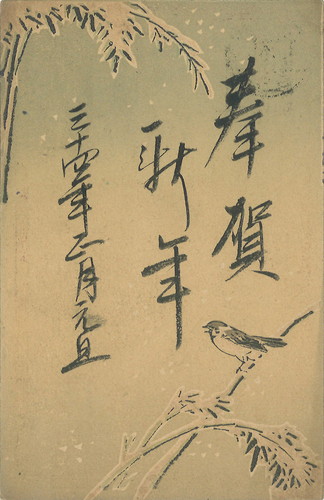 奉賀
新年
三十四年正月元旦